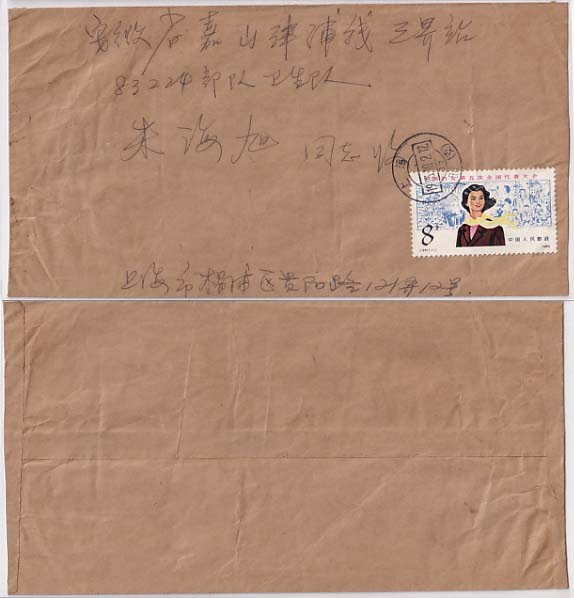 安徽省嘉山津浦线三界站
83224部队卫生队
朱海旭 同志收
上海
中国妇女第五次全国代表大会
8分
中国人民邮政
上海市杨浦区贵阳路121弄12号.